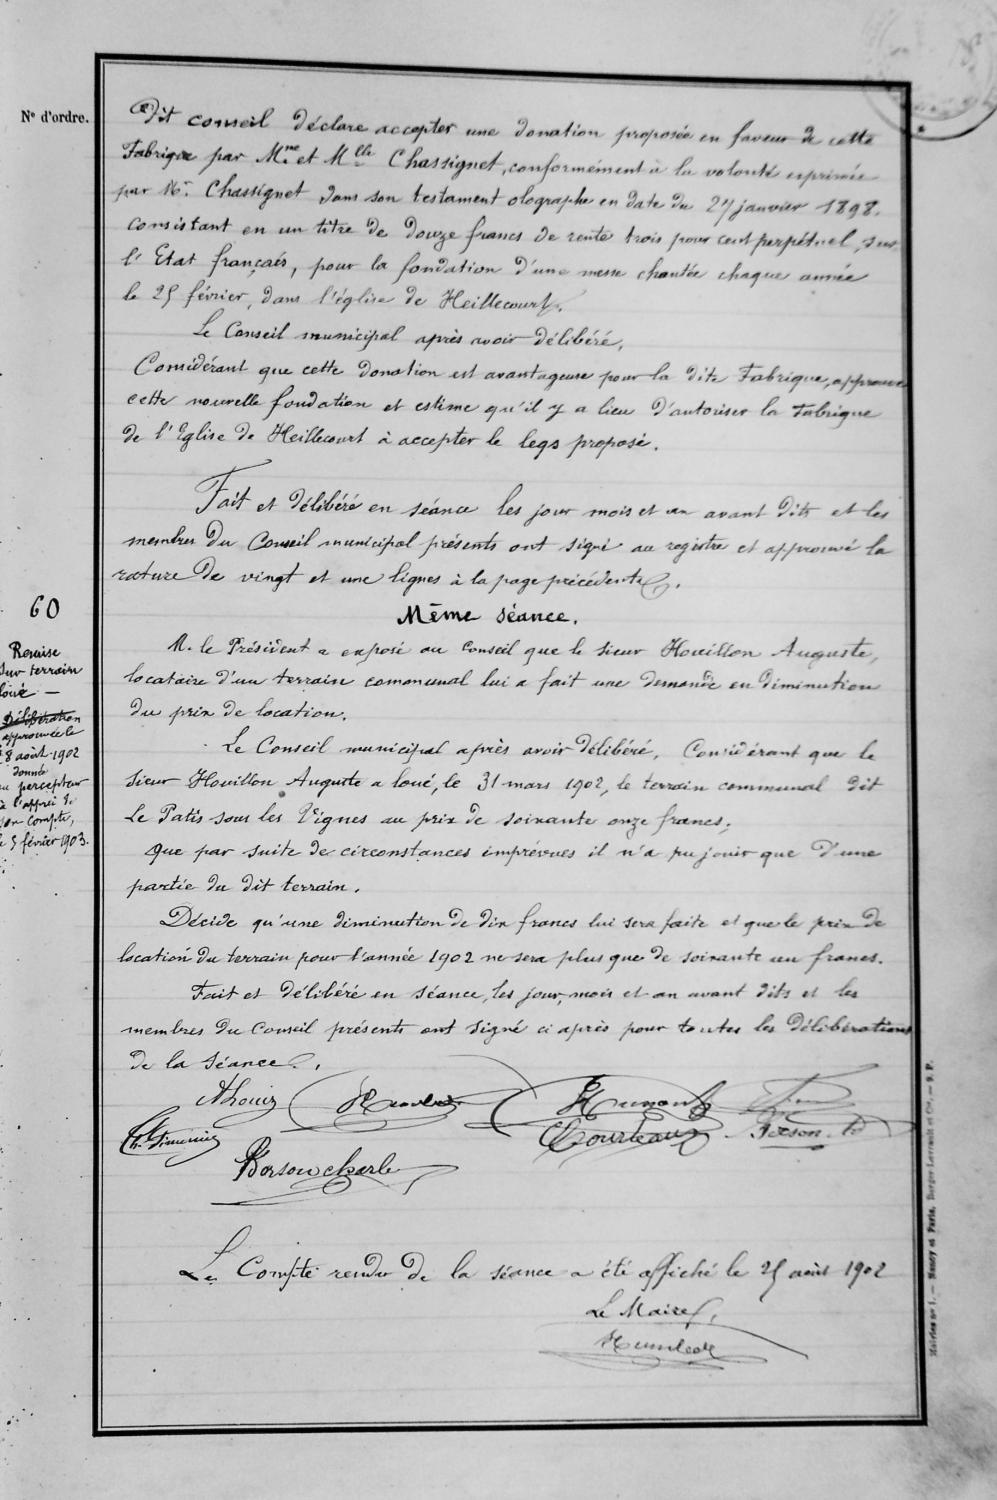 N° d'ordre.
Dit conseil déclare accepter une donation proposée en faveur de cette
Fabrique par Mme et Mlle Chassignet, conformément à la volonté exprimée
par Mr. Chassignet dans son testament olographe en date du 27 janvier 1898.
consistant en un titre de douze francs de rente trois pour cent perpétuel, sur
l'Etat français, pour la fondation d'une messe chantée chaque année
le 25 février, dans l'église de Heillecourt.
Le Conseil municipal après avoir délibéré,
Considérant que cette donation est avantageuse pour la dite Fabrique, approuve
cette nouvelle fondation et estime qu'il y a lieu d'autoriser la Fabrique
de l'Eglise de Heillecourt à accepter le legs proposé.
Fait et délibéré en séance les jour mois et an avant dits et les
membres du Conseil municipal présents ont signé au registre et approuvé la
rature de vingt et une lignes à la page précédente.
60
Même séance.
Remise
sur terrain
loué —
Délibération
approuvée le
8 août 1902
donné
au percepteur
à l'appui de
son compte,
le 5 février 1903.
M. le Président a exposé au Conseil que le sieur Houillon Auguste,
locataire d'un terrain communal lui a fait une demande en diminution
du prix de location.
Le Conseil municipal après avoir délibéré, Considérant que le
sieur Houillon Auguste a loué, le 31 mars 1902, le terrain communal dit
Le Patis sous les Vignes au prix de soixante onze francs;
Que par suite de circonstances imprévues il n'a pu jouir que d'une
partie du dit terrain.
Décide qu'une diminution de dix francs lui sera faite et que le prix de
location du terrain pour l'année 1902 ne sera plus que de soixante un francs.
Fait et délibéré en séance, les jour, mois et an avant dits et les
membres du Conseil présents ont signé ci après pour toutes les délibérations
de la séance.
Courteaux
Borson charle
Le Compte rendu de la séance a été affiché le 25 août 1902
Le Maire,
Mairies n° 1. — Nancy et Paris, Berger-Levrault et Cie. — 9. P.